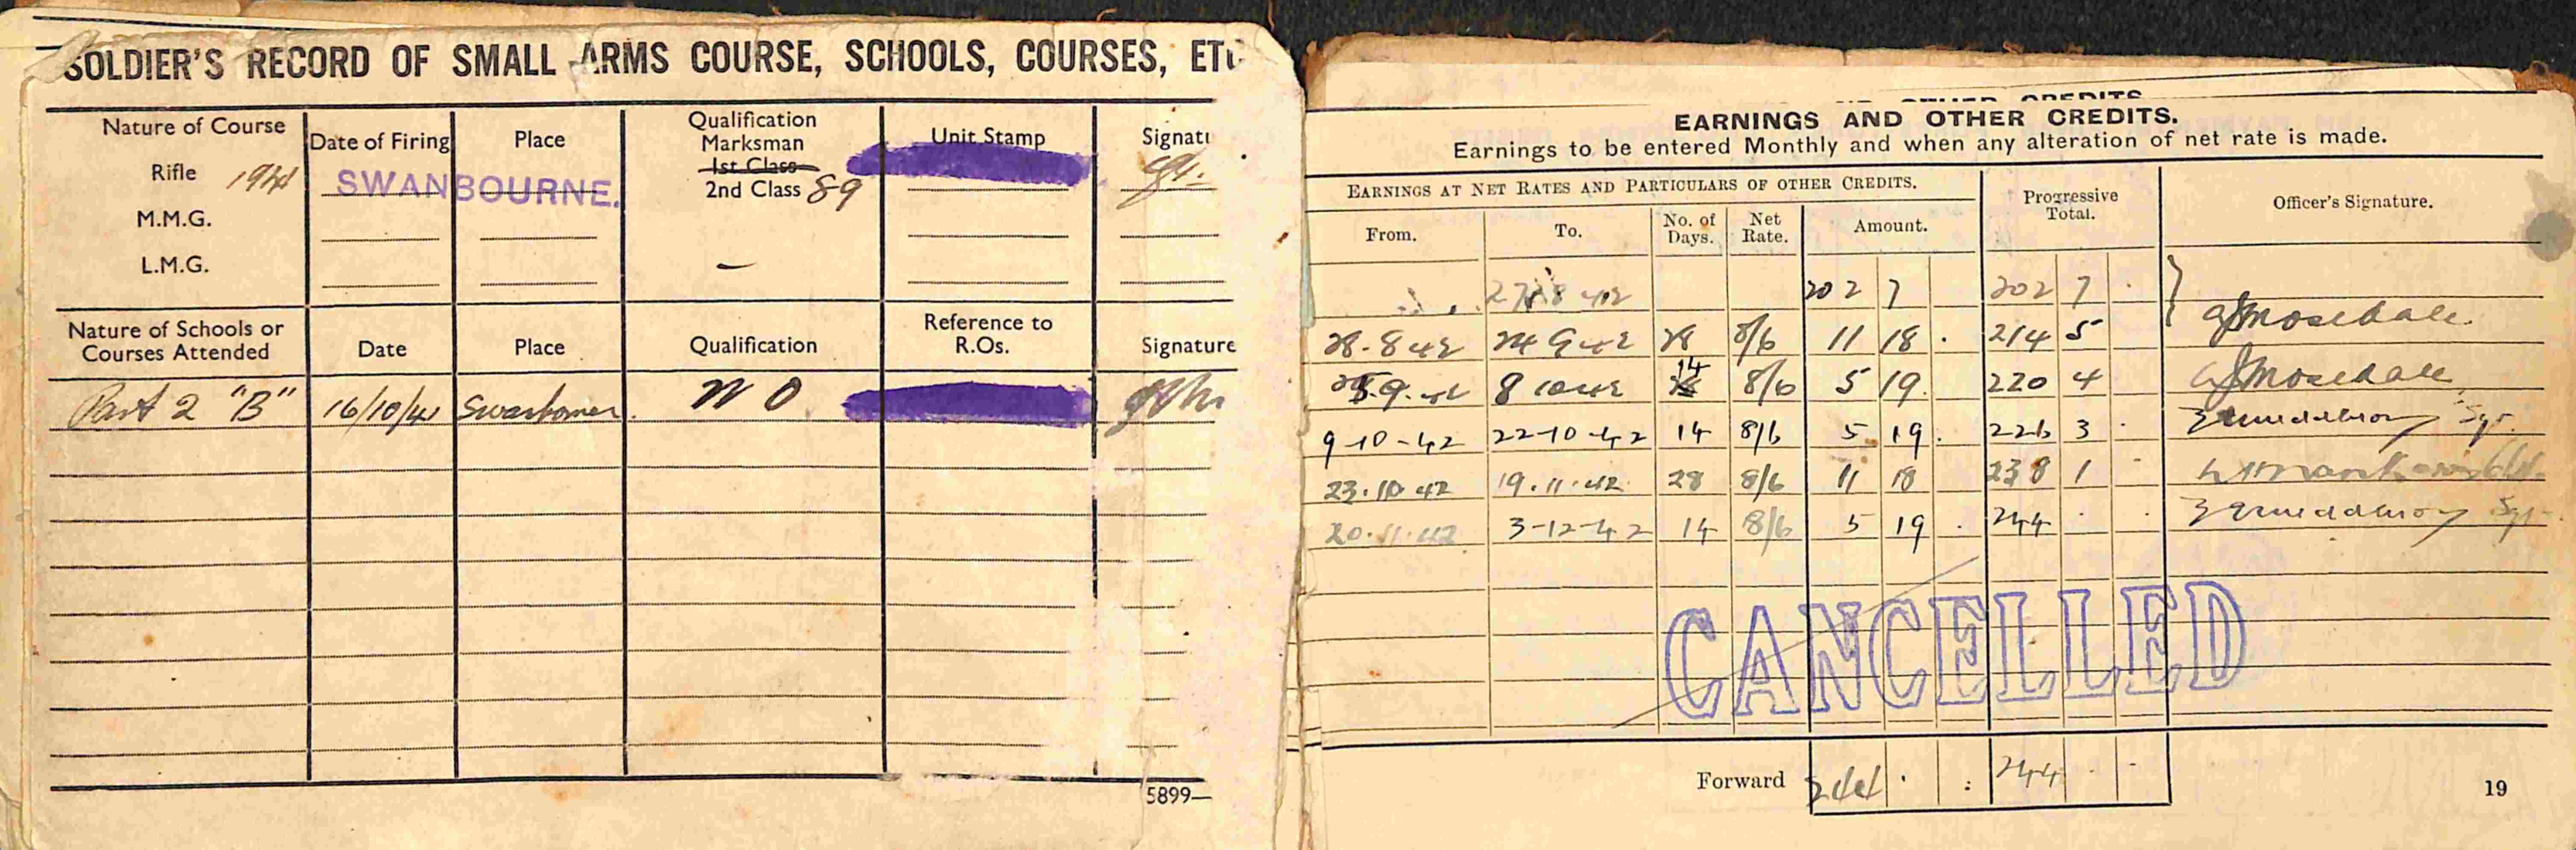 SOLDIER'S RECORD OF SMALL ARMS COURSE, SCHOOLS, COURSES, ETC
Nature of Course Date of Firing Place Qualification Unit Stamp Signatu
Marksman
1st Class
Rifle 1941 SWANBOURNE. 2nd Class 89
M.M.G.
L.M.G. –
Nature of Schools or Courses Attended Date Place Qualification Reference to R.Os. Signature
Part 2 "B" 16/10/41 Swanbourne.
5899—
EARNINGS AND OTHER CREDITS.
EARNINGS AND OTHER CREDITS.
Earnings to be entered Monthly and when any alteration of net rate is made.
EARNINGS AT NET RATES AND PARTICULARS OF OTHER CREDITS. Progressive Total. Officer's Signature.
From. To. No. of Days. Net Rate. Amount.
27 8 42 202 7 202 7 .
28.8 42 24 9 42 28 8/6 11 18 . 214 5 AJMosedale
25.9.42 8 10 42 14 8/6 5 19. 220 4 AJMosedale
9-10-42 22-10-42 14 8/6 5 19. 226 3 . Sgt.
23.10.42 19.11.42 28 8/6 11 18 238 1 .
20.11.42 3-12-42 14 8/6 5 19 . 244 . . Sgt.
CANCELLED
Forward 244 . : 244 . .
19